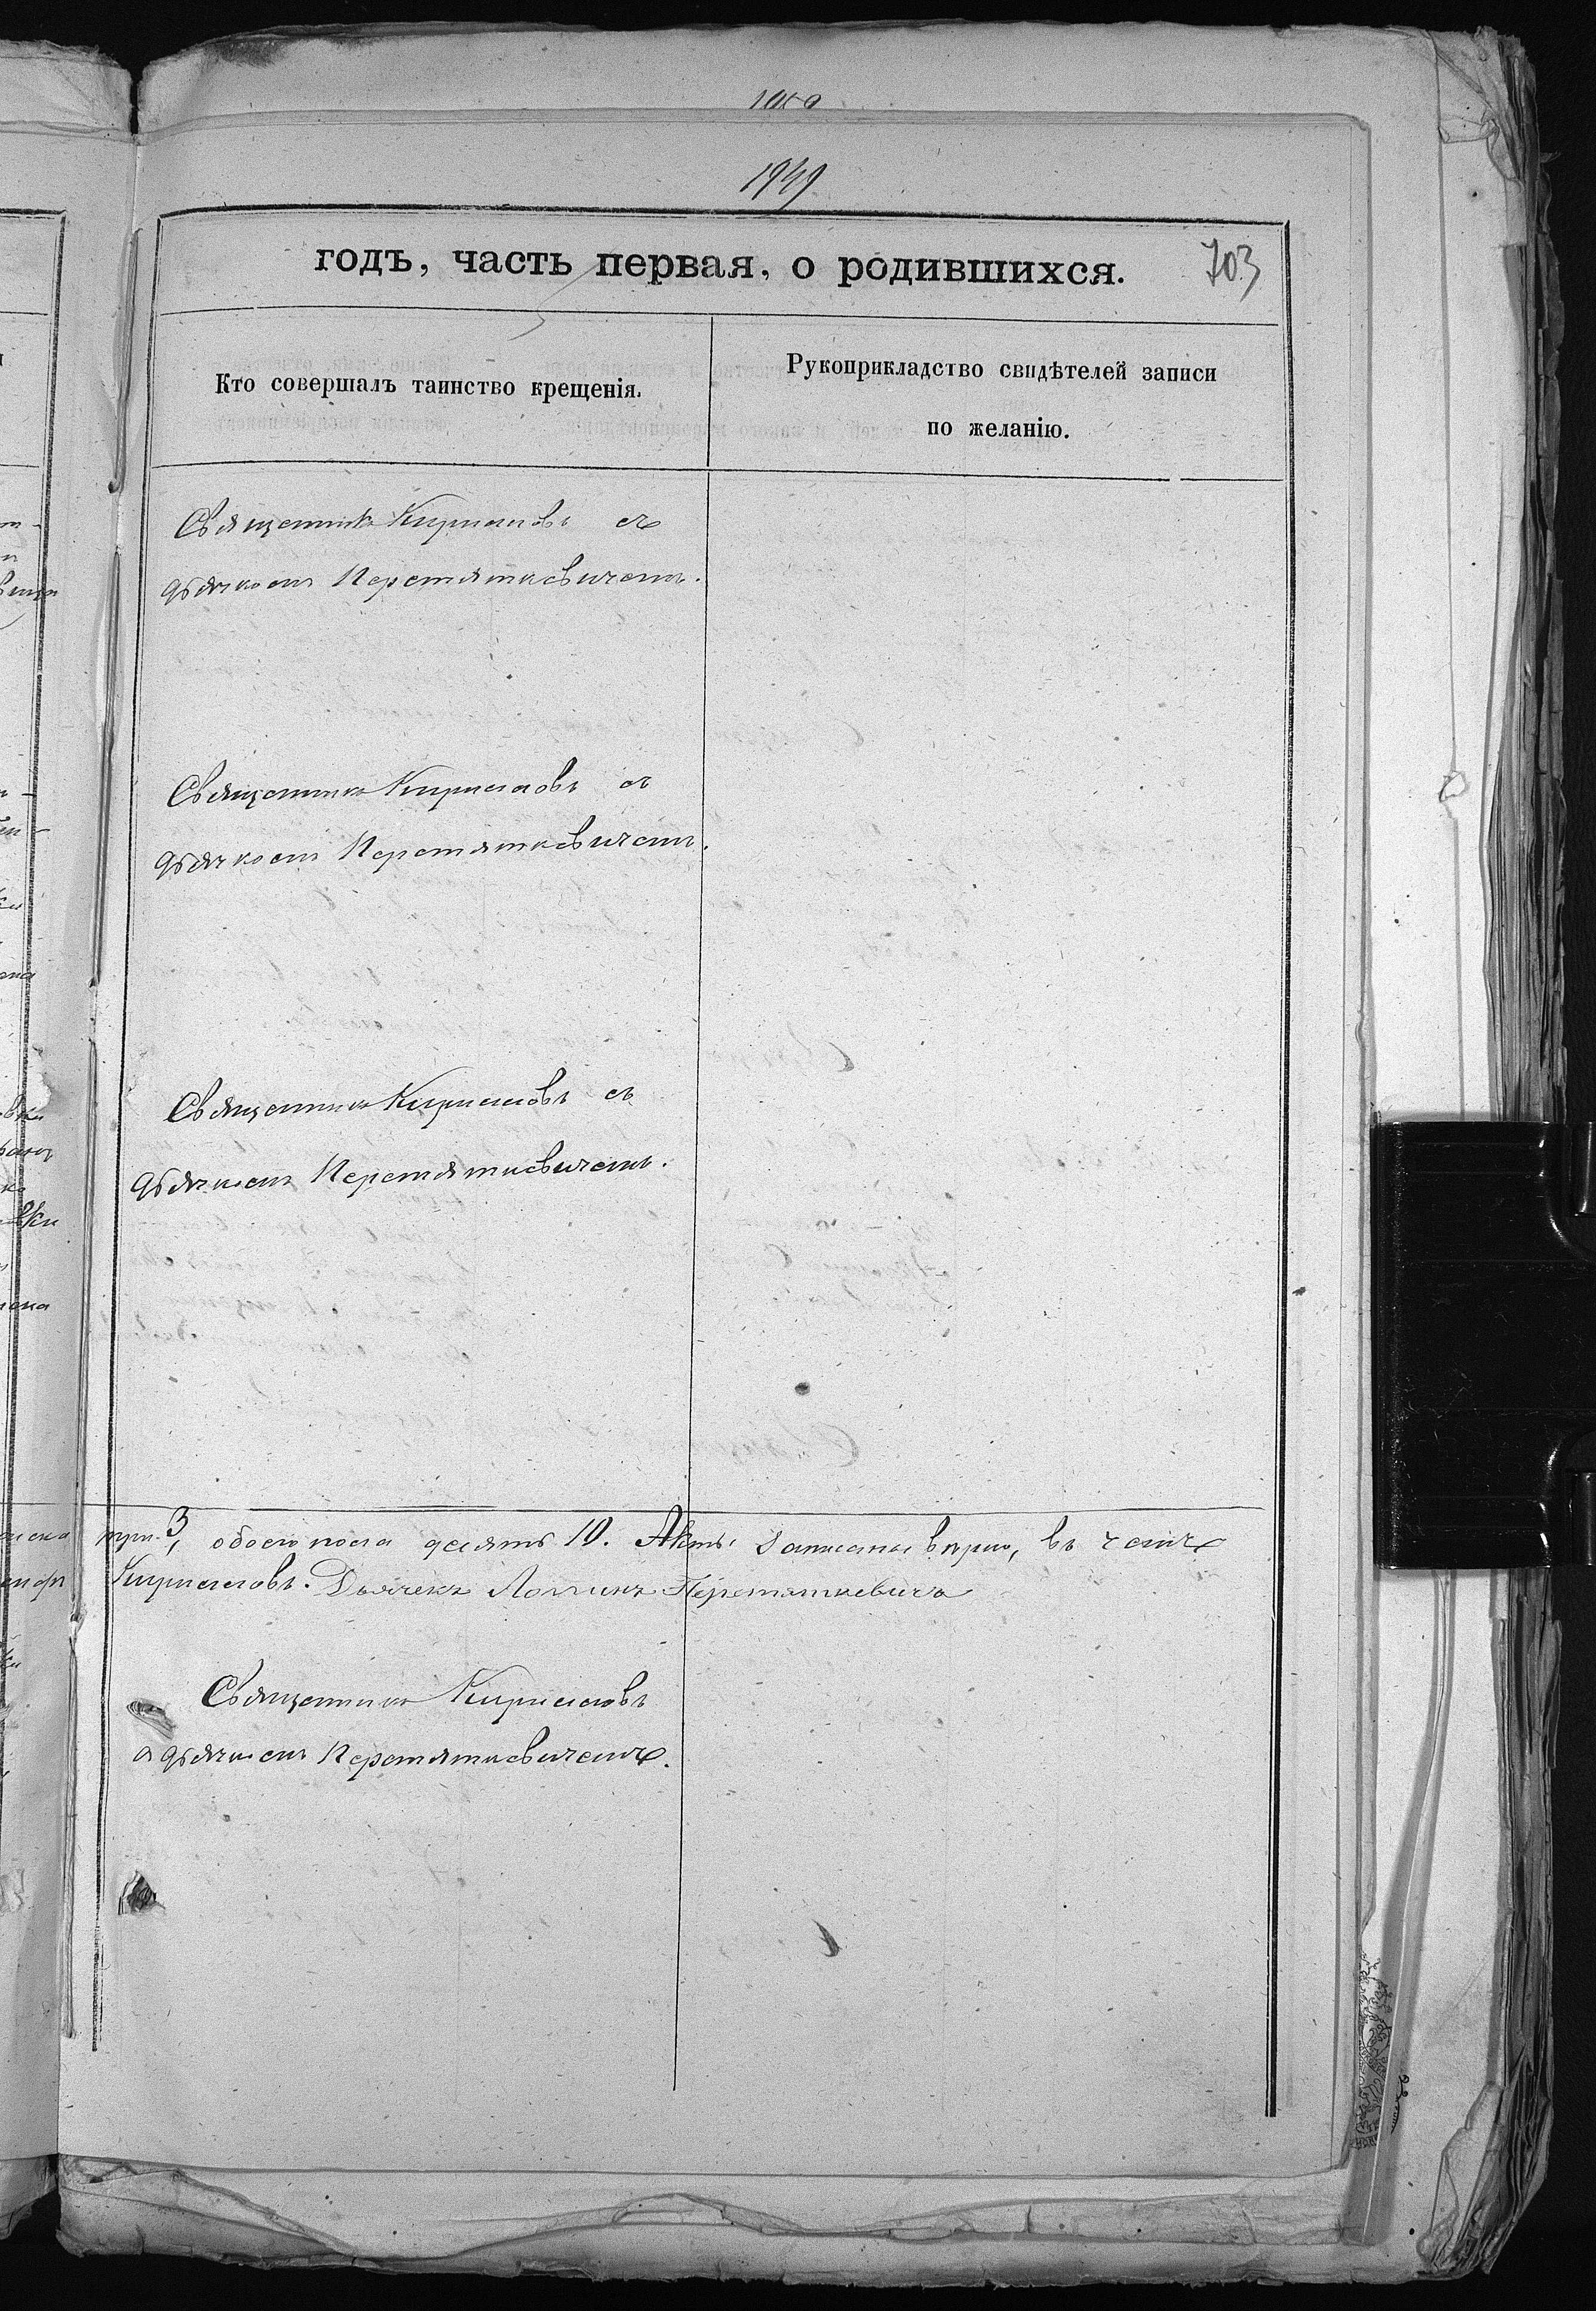 1949
годъ, часть первая, о родившихся.
703
Кто совершалъ таинство крещенія.
Рукоприкладство свидѣтелей записи
по желанію.
Священникъ Кирилловъ съ
дьячкомъ Перетяткевичемъ.
Священникъ Кирилловъ съ
дьячкомъ Перетяткевичемъ.
Священникъ Кирилловъ съ
дьячкомъ Перетяткевичемъ.
три 3, обоего пола десять 10. Акты записаны вѣрно, въ чемъ
Кирилловъ. Дьячекъ Логгинъ Перетяткевичъ
Священникъ Кирилловъ
съ дьячкомъ Перетяткевичемъ.